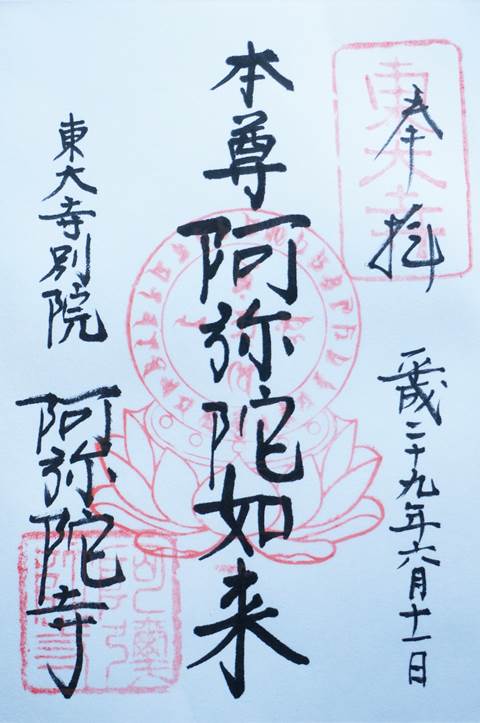 奉拝
東大寺
平成二十九年六月十一日
本尊阿弥陀如来
東大寺別院
阿弥陀寺